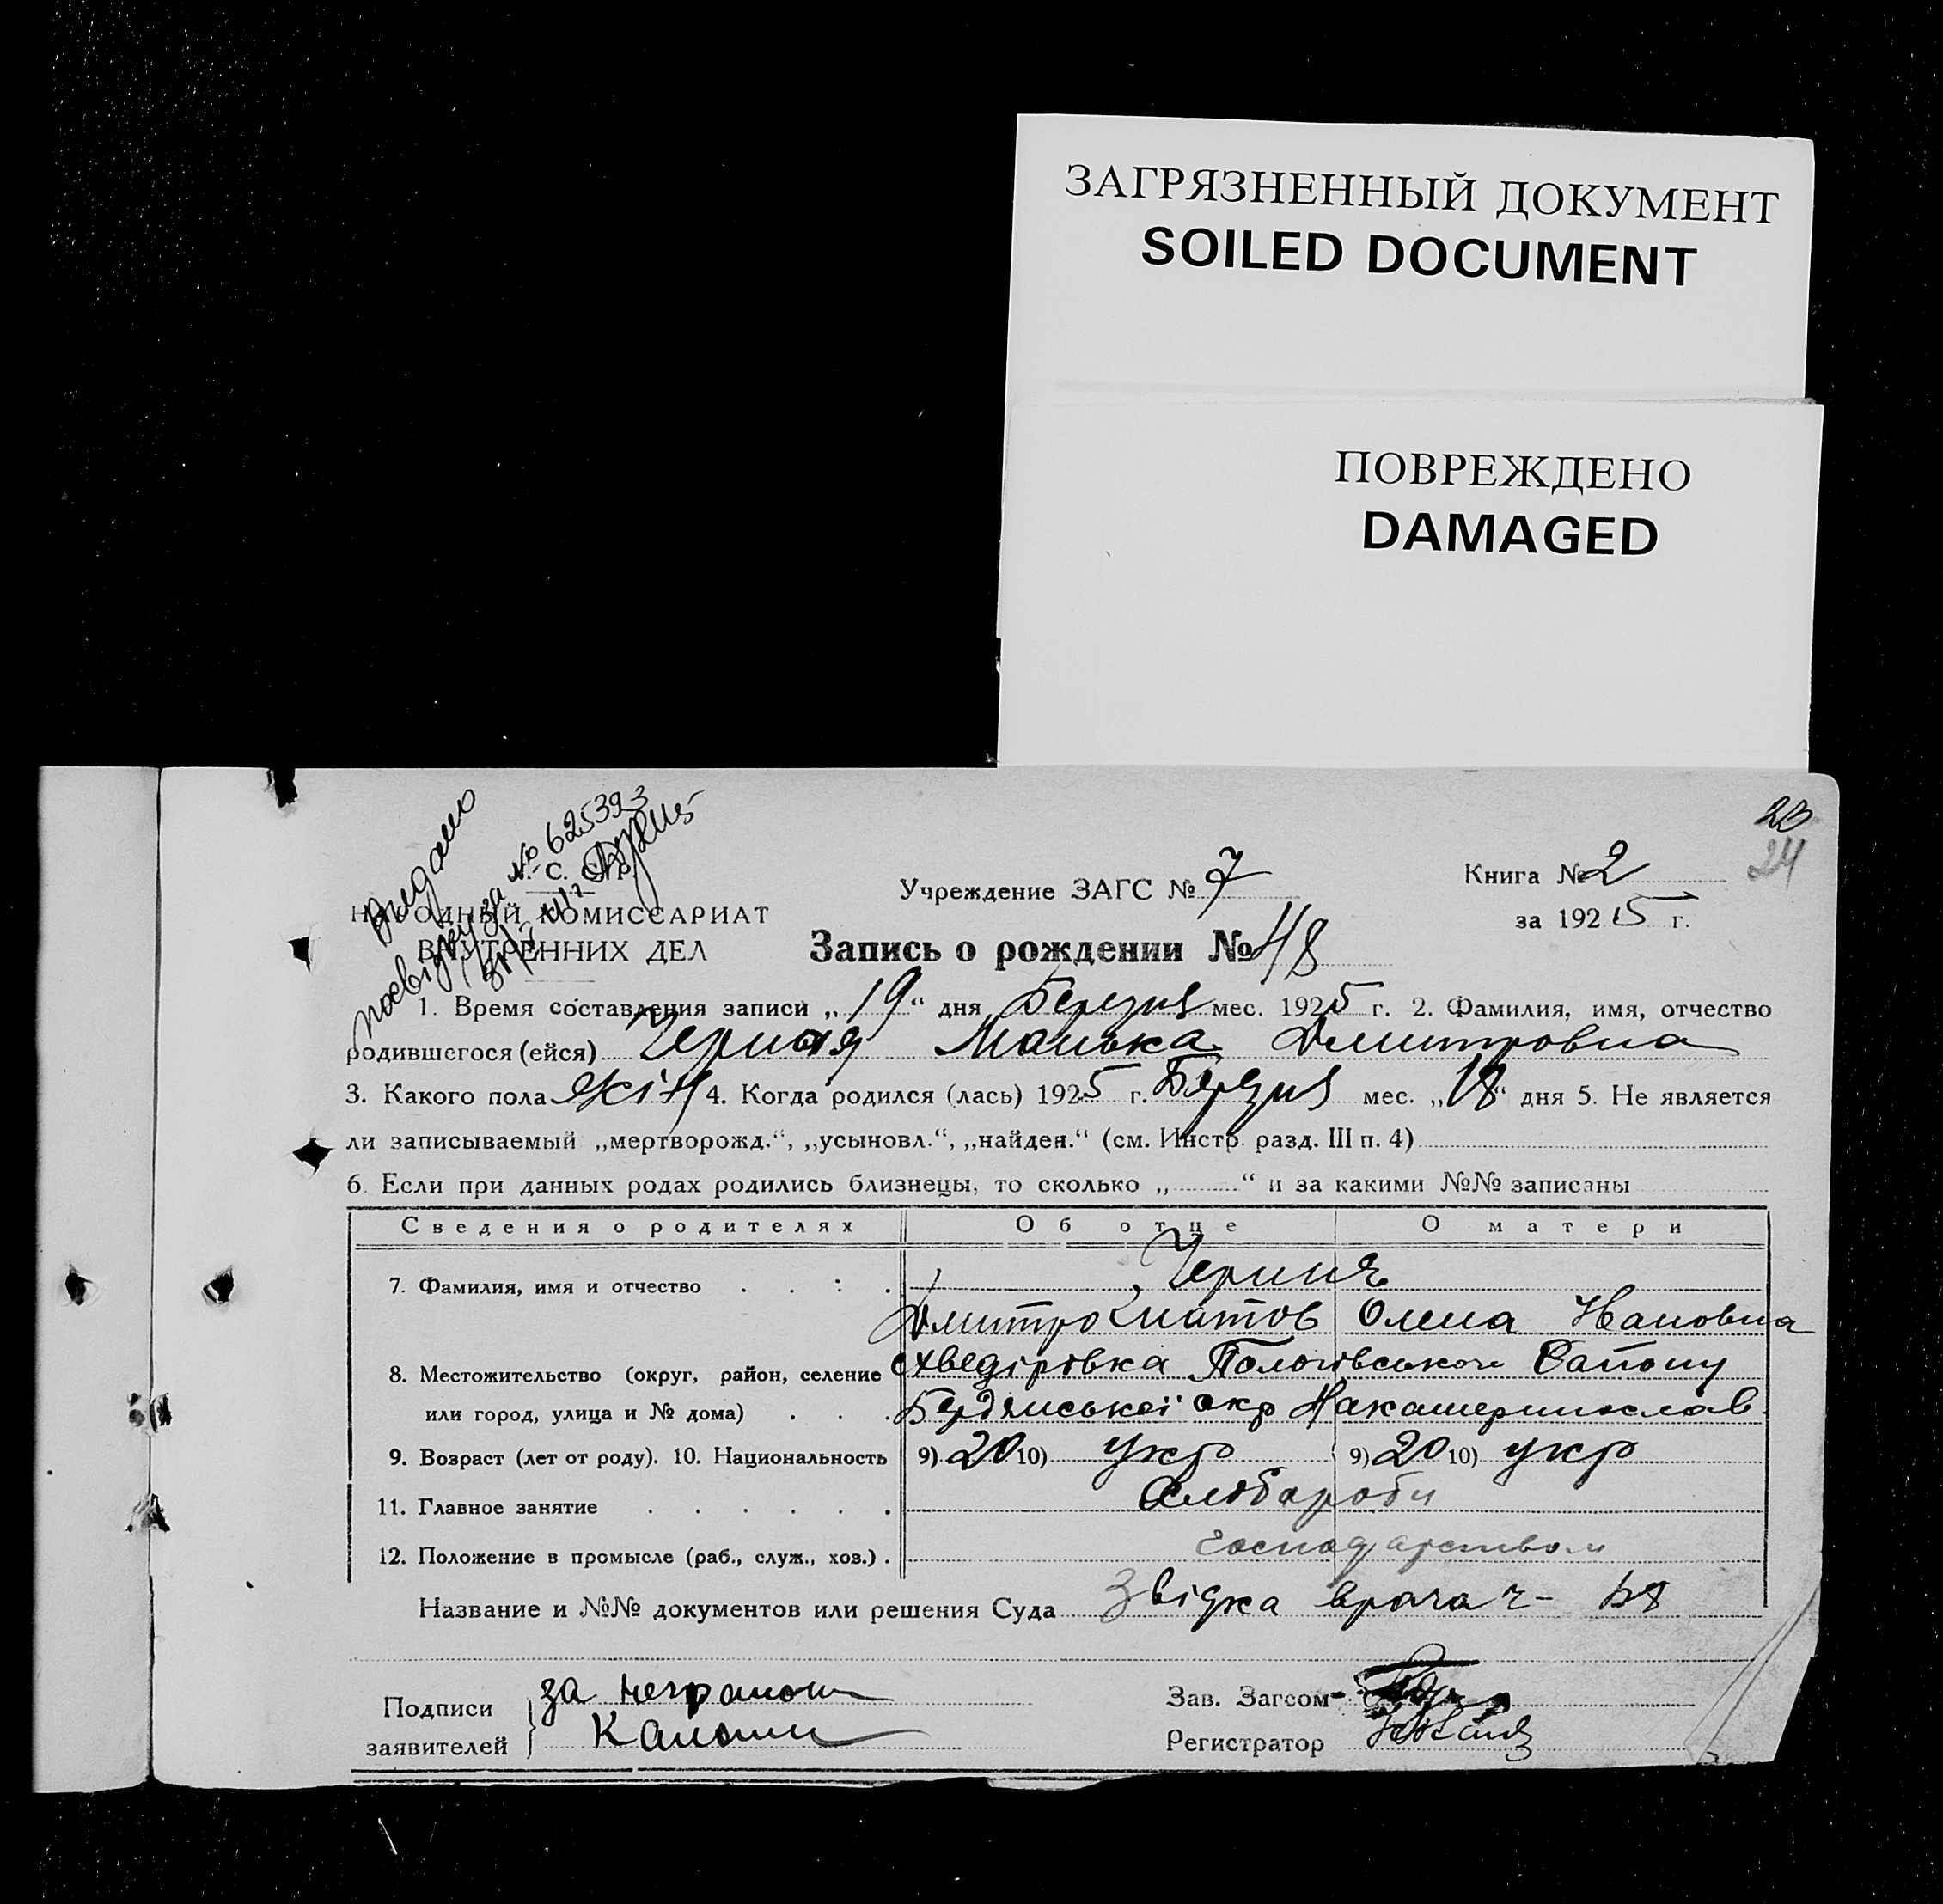 ЗАГРЯЗНЕННЫЙ ДОКУМЕНТ
SOILED DOCUMENT
ПОВРЕЖДЕНО
DAMAGED
20
24
Видано
посвідку за № 625393
С. С. Р.
НАРОДНЫЙ КОМИССАРИАТ
ВНУТРЕННИХ ДЕЛ
Учреждение ЗАГС № 7
Книга № 2
за 1925 г.
Запись о рождении № 48
1. Время составления записи „19“ дня Березня мес. 1925 г. 2. Фамилия, имя, отчество
родившегося (ейся) Черная Манька Дмитровна
3. Какого пола жін 4. Когда родился (лась) 1925 г. Березня мес. „18“ дня 5. Не является
ли записываемый „мертворожд.“, „усыновл.“, „найден.“ (см. Инстр. разд. III п. 4)
6. Если при данных родах родились близнецы, то сколько „ “ и за какими №№ записаны
Сведения о родителях Об отце О матери
7. Фамилия, имя и отчество Черний
Дмитро Олена Ивановна
8. Местожительство (округ, район, селение Хведірівка Пологівського Району
или город, улица и № дома) Бердянської окр
9. Возраст (лет от роду). 10. Национальность 9) 20 10) укр 9) 20 10) укр
11. Главное занятие Хлібороби
12. Положение в промысле (раб., служ., хоз.) господарством
Название и №№ документов или решения Суда Звідка врача ч-
Подписи за неграмотн
заявителей
Зав. Загсом
Регистратор